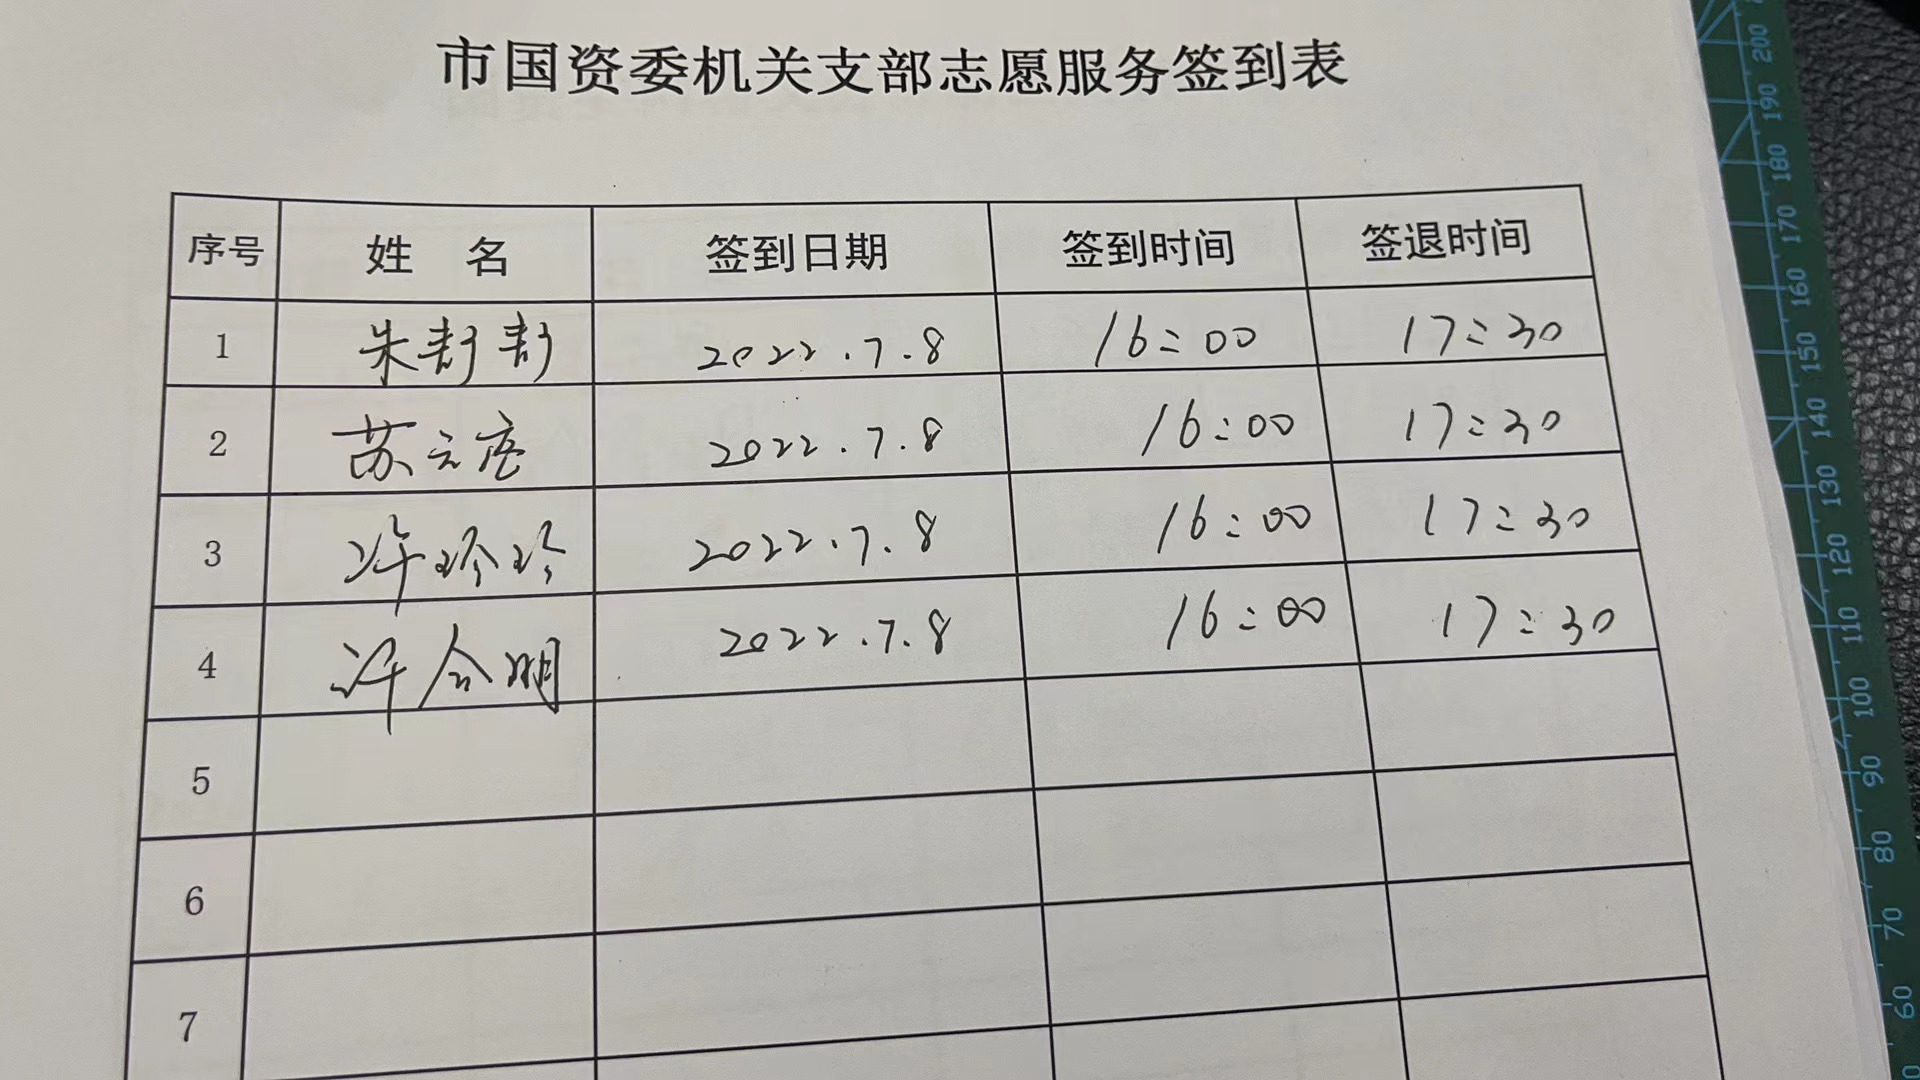 市国资委机关支部志愿服务签到表
序号 姓 名 签到日期 签到时间 签退时间
1 朱 2022.7.8 16:00 17:30
2 苏 2022.7.8 16:00 17:30
3 许玲玲 2022.7.8 16:00 17:30
4 许会明 2022.7.8 16:00 17:30
5
6
7
200
190
180
170
160
150
140
130
120
110
100
90
80
70
60